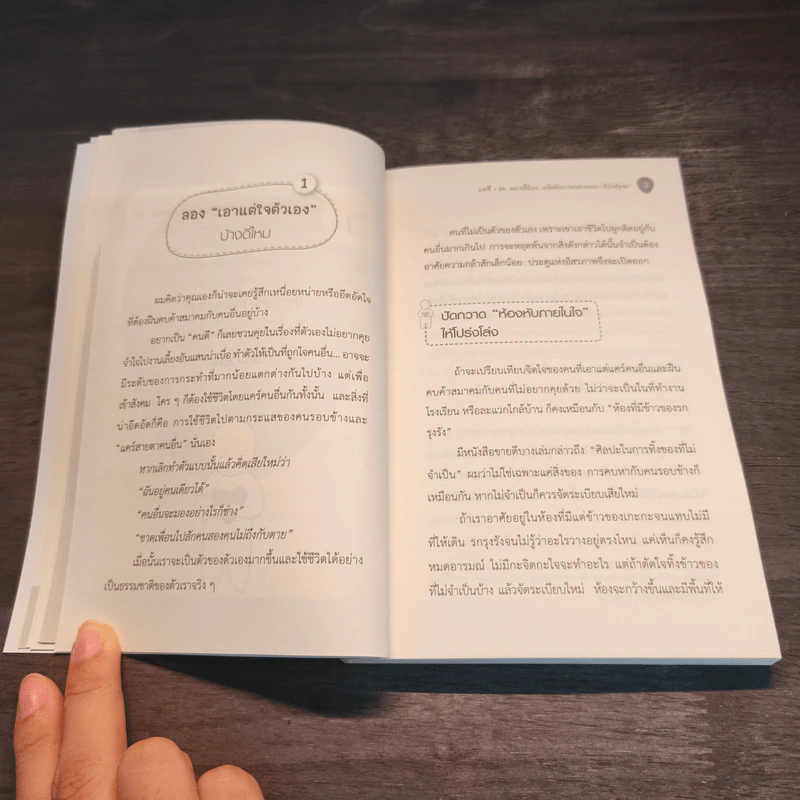 1
ลอง “เอาแต่ใจตัวเอง”
บ้างดีไหม
ผมคิดว่าคุณเองก็น่าจะเคยรู้สึกเหนื่อยหน่ายหรืออึดอัดใจ
ที่ต้องฝืนคบค้าสมาคมกับคนอื่นอยู่บ้าง
อยากเป็น “คนดี” ก็เลยชวนคุยในเรื่องที่ตัวเองไม่อยากคุย
จำใจไปงานเลี้ยงอันแสนน่าเบื่อ ทำตัวให้เป็นที่ถูกใจคนอื่น... อาจจะ
มีระดับของการกระทำที่มากน้อยแตกต่างกันไปบ้าง แต่เพื่อ
เข้าสังคม ใคร ๆ ก็ต้องใช้ชีวิตโดยแคร์คนอื่นกันทั้งนั้น และสิ่งที่
น่าอึดอัดก็คือ การใช้ชีวิตไปตามกระแสของคนรอบข้างและ
“แคร์สายตาคนอื่น” นั่นเอง
หากเลิกทำตัวแบบนั้นแล้วคิดเสียใหม่ว่า
“ฉันอยู่คนเดียวได้”
“คนอื่นจะมองอย่างไรก็ช่าง”
“ขาดเพื่อนไปสักคนสองคนไม่ถึงกับตาย”
เมื่อนั้นเราจะเป็นตัวของตัวเองมากขึ้นและใช้ชีวิตได้อย่าง
เป็นธรรมชาติของตัวเราจริง ๆ
บทที่ 1
คนที่ไม่เป็นตัวของตัวเอง เพราะเขาเอาชีวิตไปผูกติดอยู่กับ
คนอื่นมากเกินไป การจะหลุดพ้นจากสิ่งดังกล่าวได้นั้นจำเป็นต้อง
อาศัยความกล้าสักเล็กน้อย ประตูแห่งอิสรภาพจึงจะเปิดออก
ปัดกวาด “ห้องหับภายในใจ”
ให้โปร่งโล่ง
ถ้าจะเปรียบเทียบจิตใจของคนที่เอาแต่แคร์คนอื่นและฝืน
คบค้าสมาคมกับคนที่ไม่อยากคุยด้วย ไม่ว่าจะเป็นในที่ทำงาน
โรงเรียน หรือละแวกใกล้บ้าน ก็คงเหมือนกับ “ห้องที่มีข้าวของรก
รุงรัง”
มีหนังสือขายดีบางเล่มกล่าวถึง “ศิลปะในการทิ้งของที่ไม่
จำเป็น” ผมว่าไม่ใช่เฉพาะแค่สิ่งของ การคบหากับคนรอบข้างก็
เหมือนกัน หากไม่จำเป็นก็ควรจัดระเบียบเสียใหม่
ถ้าเราอาศัยอยู่ในห้องที่มีแต่ข้าวของเกะกะจนแทบไม่มี
ที่ให้เดิน รกรุงรังจนไม่รู้ว่าอะไรวางอยู่ตรงไหน แค่เห็นก็คงรู้สึก
หมดอารมณ์ ไม่มีกะจิตกะใจจะทำอะไร แต่ถ้าตัดใจทิ้งข้าวของ
ที่ไม่จำเป็นบ้าง แล้วจัดระเบียบใหม่ ห้องจะกว้างขึ้นและมีพื้นที่ให้